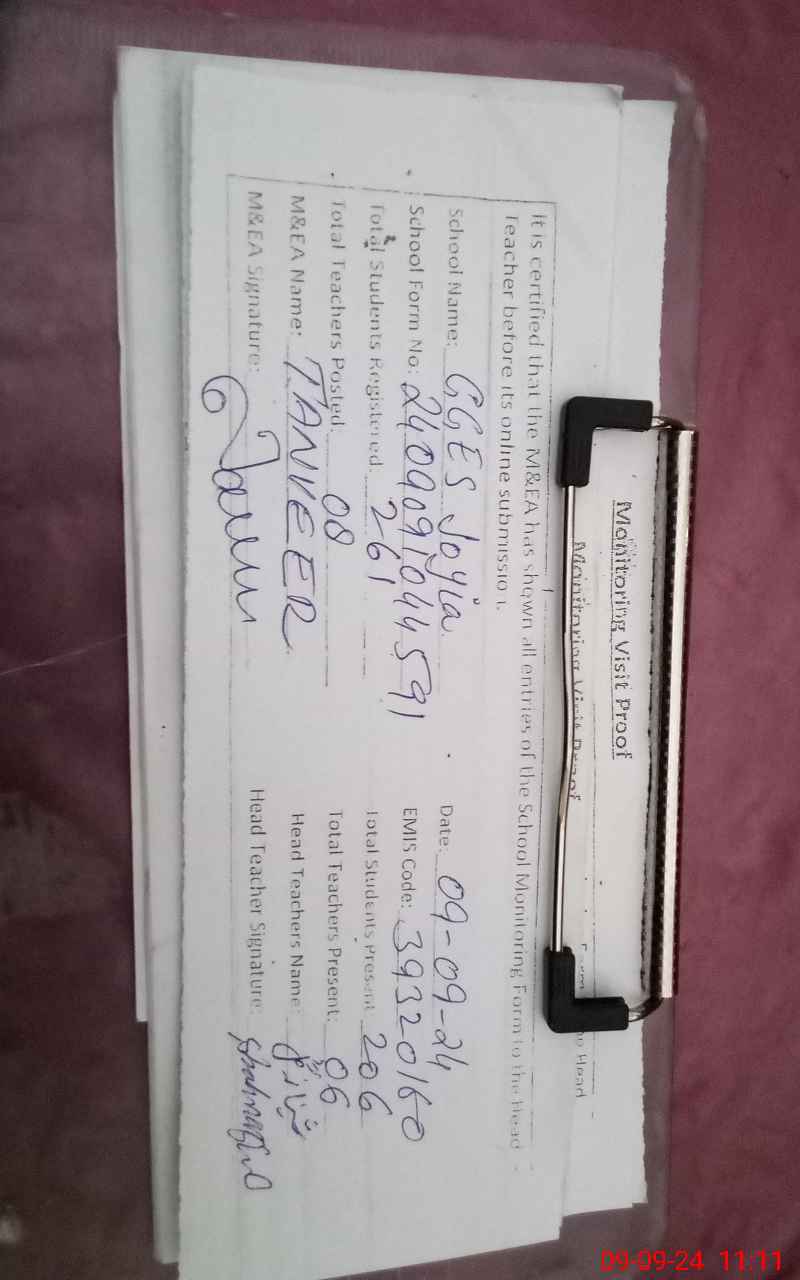 Monitoring Visit Proof
Monitoring Visit Proof
Head
It is certified that the M&EA has shown all entries of the School Monitoring Form to the Head
Teacher before its online submission.
School Name: GGES Joyia Date: 09-09-24
School Form No: 240909104459 1 EMIS Code: 39320160
Total Students Registered: 261 Total Students Present 206
Total Teachers Posted: 08 Total Teachers Present: 06
M&EA Name: TANVEER Head Teachers Name:
M&EA Signature: Head Teacher Signature:
09-09-24 11:11